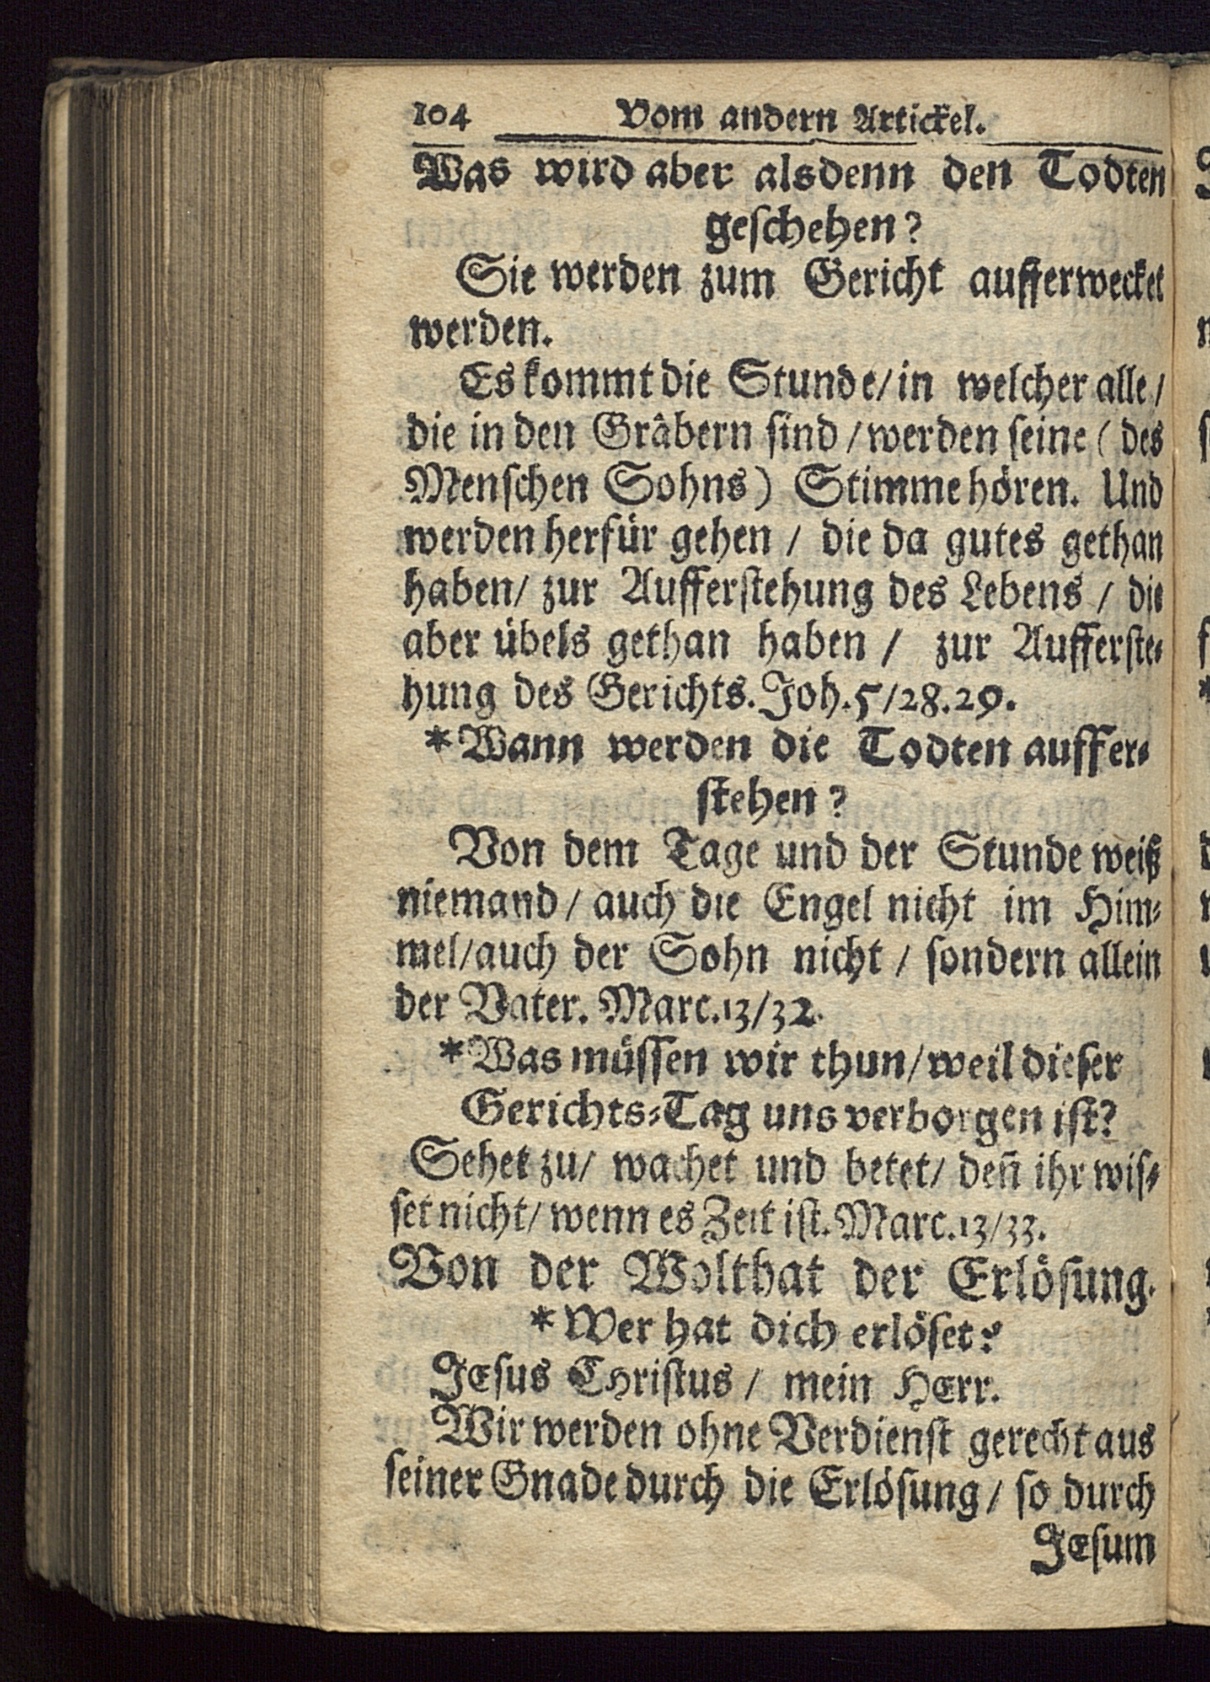 104 Vom andern Artickel.
Was wird aber alsdenn den Todten
geschehen?
Sie werden zum Gericht aufferwecket
werden.
Es kommt die Stunde/ in welcher alle/
die in den Gräbern sind / werden seine ( des
Menschen Sohns) Stimme hören. Und
werden herfür gehen / die da gutes gethan
haben/ zur Aufferstehung des Lebens / die
aber übels gethan haben / zur Aufferste-
hung des Gerichts. Joh. 5/28.29.
* Wann werden die Todten auffer-
stehen?
Von dem Tage und der Stunde weiß
niemand / auch die Engel nicht im Him-
mel/ auch der Sohn nicht / sondern allein
der Vater. Marc. 13/32.
* Was müssen wir thun/ weil dieser
Gerichts-Tag uns verborgen ist?
Sehet zu/ wachet und betet/ deñ ihr wis-
set nicht/ wenn es Zeit ist. Marc. 13/33.
Von der Wolthat der Erlösung.
* Wer hat dich erlöset?
JEsus CHristus / mein HErr.
Wir werden ohne Verdienst gerecht aus
seiner Gnade durch die Erlösung / so durch
JEsum